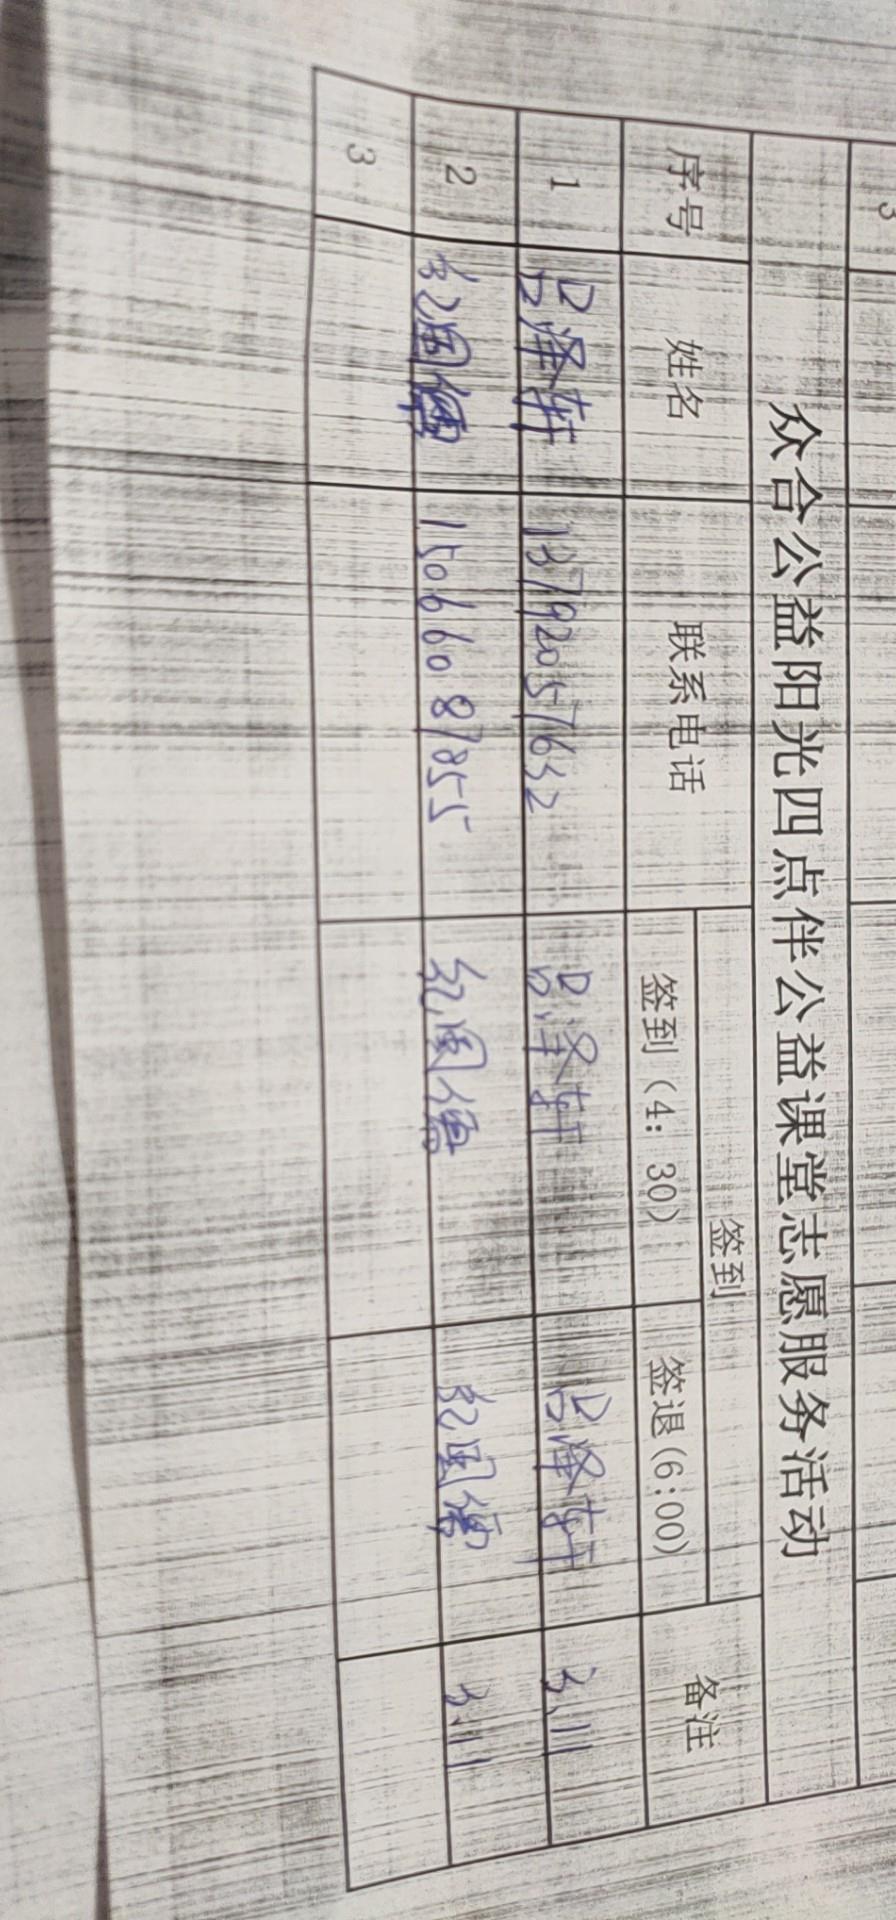 3
众合公益阳光四点伴公益课堂志愿服务活动
序号 姓名 联系电话 签到 备注
签到（4：30） 签退(6:00)
1 吕泽轩 13792057632 吕泽轩 吕泽轩 3.11
2 15066087855 3.11
3